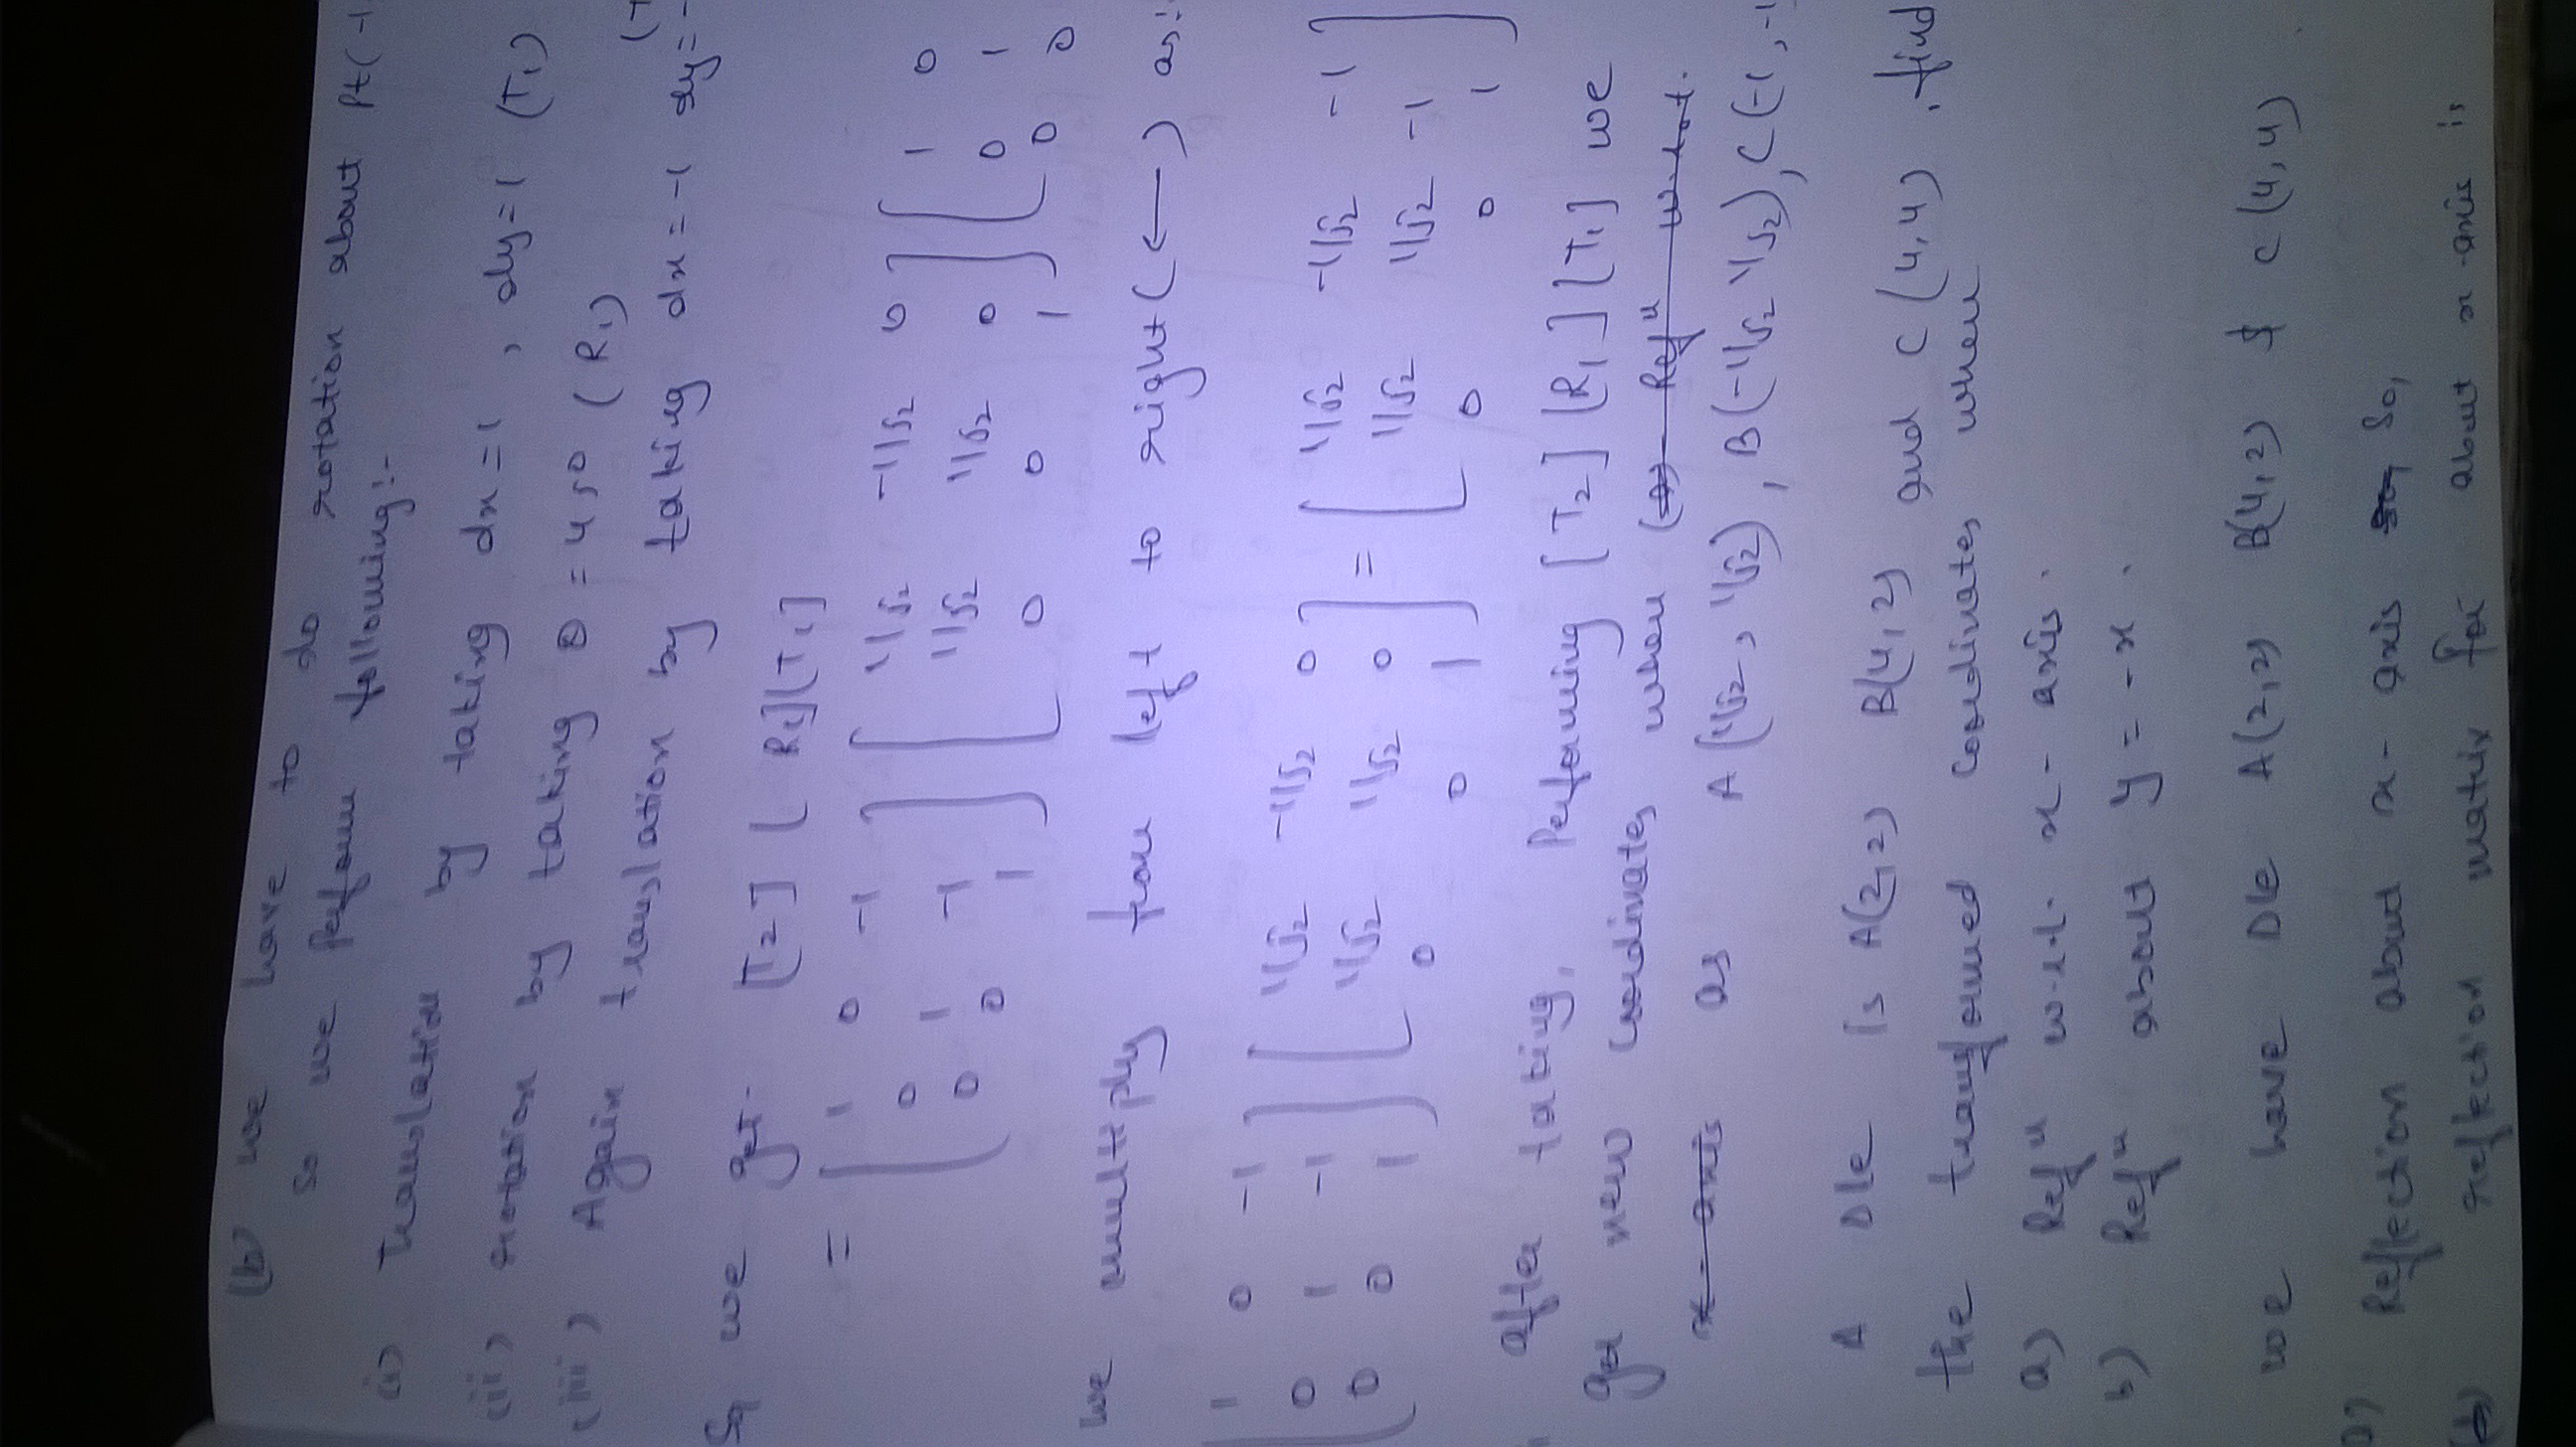 (b) we have to do rotation about Pt(-1
So we Perform following:-
(i) Translation by taking dx=1, dy=1 (T₁)
(ii) rotation by taking θ = 45° (R₁)
(iii) Again translation by taking dx=-1 dy=- (T
So we get. [T₂] [R₁][T₁]
= [ 1 0 -1 ] [ 1/√2 -1/√2 0 ] [ 1 0
0 1 -1 1/√2 1/√2 0 0 1
0 0 1 0 0 1 0 0
we multiply from left to right (←) as:-
[ 1 0 -1 ] [ 1/√2 -1/√2 0 ] = [ 1/√2 -1/√2 -1 ]
0 1 -1 1/√2 1/√2 0 1/√2 1/√2 -1
0 0 1 0 0 1 0 0 1
after taking, Performing [T₂] [R₁] [T₁] we
get new coordinates when (a) Refⁿ w.r.t.
x-axis as A(1/√2, 1/√2), B(-1/√2 1/√2), C(-1,-1
A Dle is A(2,2) B(4,2) and C(4,4), find
the transformed coordinates when
a) Refⁿ w.r.t. x-axis.
b) Refⁿ about y=-x.
we have Dle A(2,2) B(4,2) & C(4,4)
a) Reflection about x-axis So,
(b) reflection matrix for about x-axis is